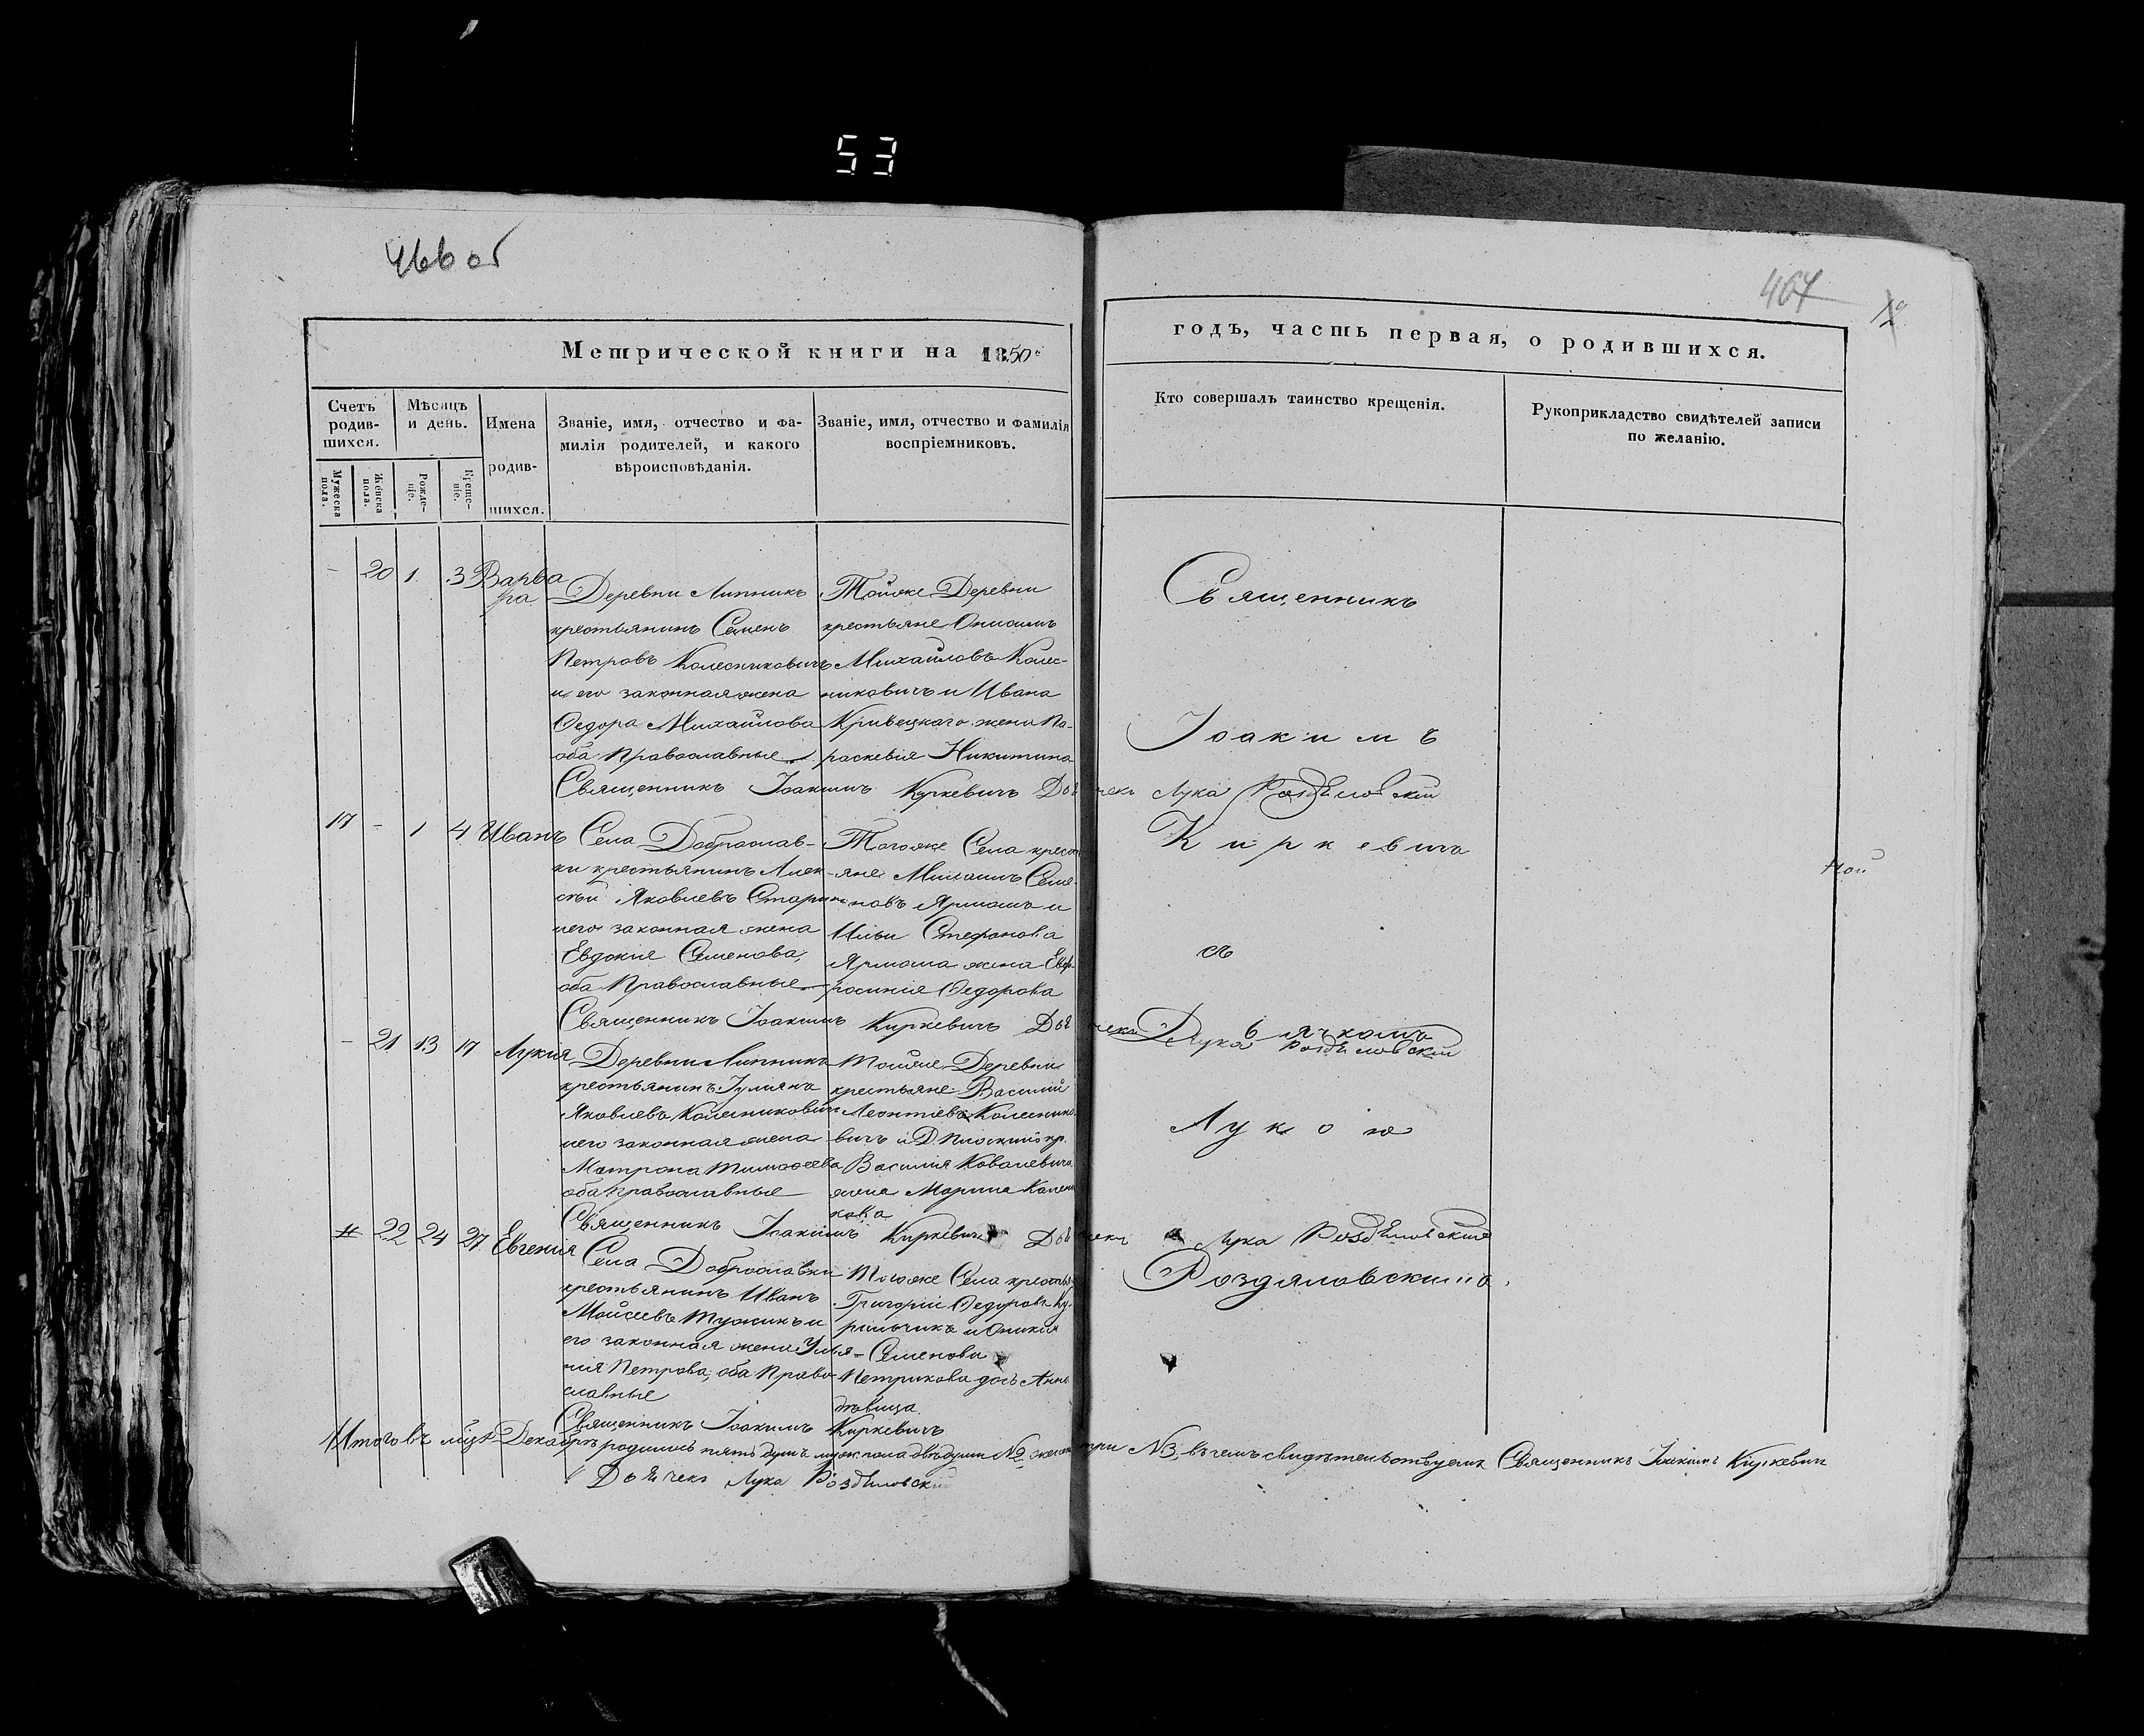 53
466 об
467
Метрической книги на 1850й
годъ, часть первая, о родившихся.
Счетъ родив-шихся.
Мѣсяцъ и день.
Имена родив-шихся.
Званіе, имя, отчество и фа-
милія родителей, и какого
вѣроисповѣданія.
Званіе, имя, отчество и фамилія
воспріемниковъ.
Кто совершалъ таинство крещенія.
Рукоприкладство свидѣтелей записи
по желанію.
Мужеска пола.
Женска пола.
Рожде-ніе.
Креще-ніе.
- 20 1 3 Варва
ра
Деревни Липникъ
крестьянинъ Семенъ
Петровъ Колесниковичъ
и его законная жена
Ѳедора Михайлова
оба Православные
Тойже Деревни
крестьяне Онисимъ
Михайловъ Колес-
никовичъ и Ивана
Кривецкаго жена Па-
раскевія Никитина
Священникъ Іоакимъ Киркевичъ Дьячекъ Лука Роздѣловскій
17 - 1 4 Иванъ
Села Доброслав-
ки крестьянинъ Алек-
сѣй Яковлевъ
и его законная жена
Евдокія Семенова,
оба Православные
Тогоже Села крестья
яне Семе-
новъ Ярмошъ и
Ильи Стефанова
Ярмоша жена Евф-
росинія Ѳедорова
Священникъ Іоакимъ Киркевичъ Дьячекъ Лука Роздѣловскій
- 21 13 17 Лукія
Деревни Липникъ
крестьянинъ Іуліянъ
Яковлевъ Колесниковичъ
и его законная жена
Матрона Тимоѳеева
оба православные
Тойже Деревни
крестьяне Василій
Леонтіевъ Колеснико
вичъ и Д. Плоскини кр.
Василія Ковалевича
жена Марина
кова
Священникъ Іоакимъ Киркевичъ Дьячекъ Лука Роздѣловскій
22 24 27 Евгенія
Села Доброславки
крестьянинъ Иванъ
Мойсеевъ Тужикъ и
его законная жена Улья-
нія Петрова, оба Право-
славные
Тогоже Села крестья
Григорій Ѳедоровъ Ку-
рильчикъ и
Семенова
Петрикова дочь Анна
дѣвица
Священникъ Іоакимъ Киркевичъ
Священникъ
Іоакимъ
Киркевичъ
съ
Дьячкомъ
Лукою
Роздяловскимъ.
ной
Итого въ мцѣ Декабрѣ родилось пять душъ муж. пола двѣ души №2 женск три №3, въ чемъ свидѣтельствуемъ Священникъ Іоакимъ Киркевичъ
Дьячекъ Лука Роздѣловскій